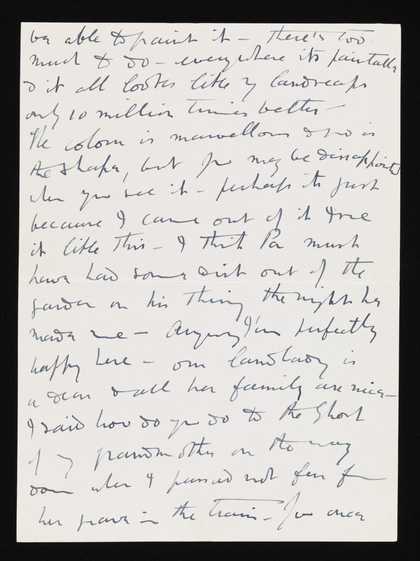 be able to paint it – there's too
much to do – everywhere its paintable
& it all looks like my landscape
only 10 million times better –
The colour is marvellous & so is
the shape, but you may be disappointed
when you see it – perhaps its just
because I came out of it I love
it like this – I think Pa must
have had some dirt out of the
garden on his thing the night he
made me – Anyway I'm perfectly
happy here – our landlady is
a dear & all her family are nice –
I said how do you do to the Ghost
of my grandmother on the way
down when I passed not far from
her grave in the train – You once